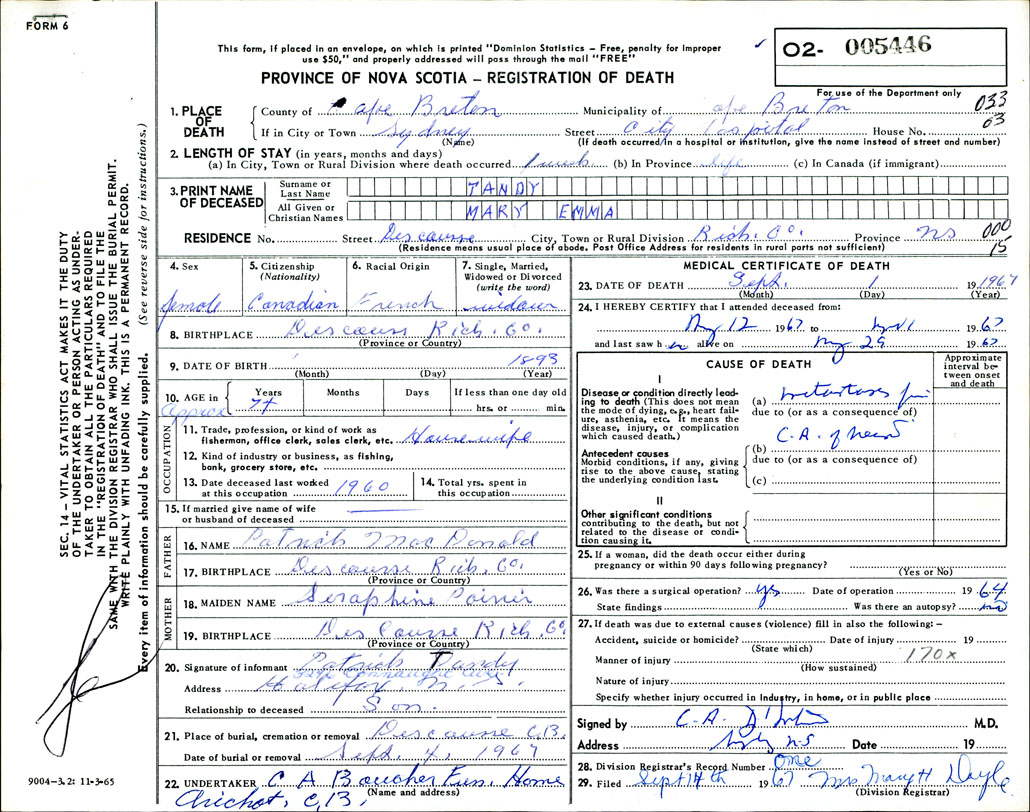 FORM 6
This form, if placed in an envelope, on which is printed "Dominion Statistics – Free, penalty for improper
use $50," and properly addressed will pass through the mail "FREE"
O2- 005446
PROVINCE OF NOVA SCOTIA – REGISTRATION OF DEATH
For use of the Department only
033
63
1. PLACE OF DEATH
County of Cape Breton Municipality of Cape Breton
If in City or Town Sydney Street City Hospital House No.
(Name) (If death occurred in a hospital or institution, give the name instead of street and number)
2. LENGTH OF STAY (in years, months and days)
(a) In City, Town or Rural Division where death occurred 1 (b) In Province life (c) In Canada (if immigrant)
3. PRINT NAME OF DECEASED
Surname or Last Name TANDY
All Given or Christian Names MARY EMMA
RESIDENCE No. Street Descousse City, Town or Rural Division Rich. Co. Province NS
000
15
(Residence means usual place of abode. Post Office Address for residents in rural parts not sufficient)
4. Sex Female
5. Citizenship (Nationality) Canadian
6. Racial Origin French
7. Single, Married, Widowed or Divorced (write the word) widow
8. BIRTHPLACE Descouss Rich. Co.
(Province or Country)
9. DATE OF BIRTH 1893
(Month) (Day) (Year)
10. AGE in Years Months Days If less than one day old
Approx 74 hrs. or min.
OCCUPATION
11. Trade, profession, or kind of work as
fisherman, office clerk, sales clerk, etc. Housewife
12. Kind of industry or business, as fishing,
bank, grocery store, etc.
13. Date deceased last worked at this occupation 1960
14. Total yrs. spent in this occupation
15. If married give name of wife
or husband of deceased
FATHER
16. NAME Patrick Mac Donald
17. BIRTHPLACE Descousse Rich. Co.
(Province or Country)
MOTHER
18. MAIDEN NAME Seraphine Poirier
19. BIRTHPLACE Des Cousse Rich. Co.
(Province or Country)
20. Signature of informant Patrick Tandy
Connaught Ave.
Address Halifax, N. S.
Relationship to deceased Son.
21. Place of burial, cremation or removal Descousse C.B.
Date of burial or removal Sept. 4, 1967
22. UNDERTAKER C A Boucher Fun. Home
(Name and address)
Arichat, C.B.
MEDICAL CERTIFICATE OF DEATH
23. DATE OF DEATH Sept. 1 19 1967
(Month) (Day) (Year)
24. I HEREBY CERTIFY that I attended deceased from:
Aug 12 1967 to 1967
and last saw h er alive on Aug 29 1967
CAUSE OF DEATH
Approximate interval between onset and death
I
Disease or condition directly leading to death (This does not
mean the mode of dying, e.g., heart failure, asthenia, etc. It means the
disease, injury, or complication
which caused death.)
(a) metastases
due to (or as a consequence of)
C.A. of
Antecedent causes
Morbid conditions, if any, giving
rise to the above cause, stating
the underlying condition last.
(b)
due to (or as a consequence of)
(c)
II
Other significant conditions
contributing to the death, but not
related to the disease or condition
causing it.
25. If a woman, did the death occur either during
pregnancy or within 90 days following pregnancy?
(Yes or No)
26. Was there a surgical operation? yes Date of operation 19 64
State findings Was there an autopsy? no
27. If death was due to external causes (violence) fill in also the following:–
Accident, suicide or homicide? Date of injury 19
(State which)
Manner of injury 170X
(How sustained)
Nature of injury
Specify whether injury occurred in Industry, in home, or in public place
Signed by C. A. M.D.
Address NS Date 19
28. Division Registrar's Record Number One
29. Filed Sept 14th 1967 Mrs Mary H Doyle
(Division Registrar)
SEC. 14 – VITAL STATISTICS ACT MAKES IT THE DUTY
OF THE UNDERTAKER OR PERSON ACTING AS UNDER-
TAKER TO OBTAIN ALL THE PARTICULARS REQUIRED
IN THE "REGISTRATION OF DEATH" AND TO FILE THE
SAME WITH THE DIVISION REGISTRAR WHO SHALL ISSUE THE BURIAL PERMIT.
WRITE PLAINLY WITH UNFADING INK. THIS IS A PERMANENT RECORD.
Every item of information should be carefully supplied. (See reverse side for instructions.)
9004-3.2: 11-3-65